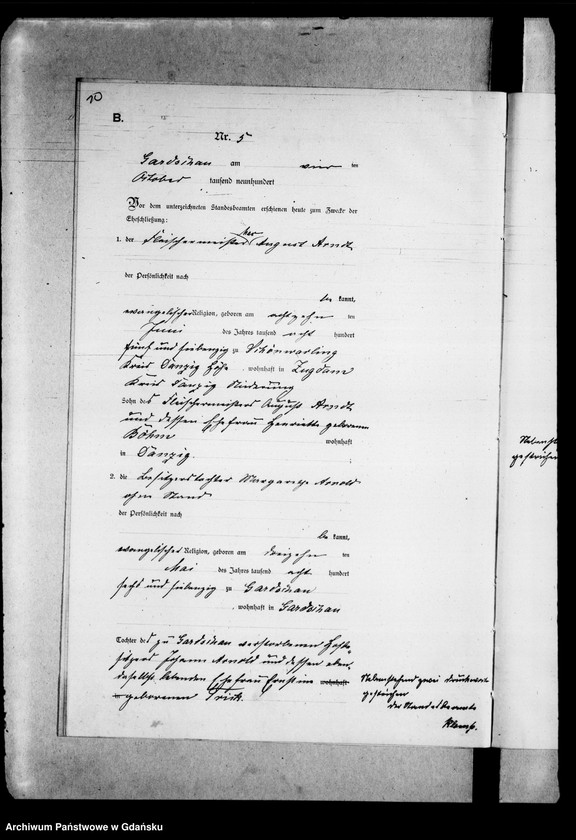 10
B.
Nr. 5
Gardschau am vier ten
Oktober tausend neunhundert
Vor dem unterzeichneten Standesbeamten erschienen heute zum Zwecke der
Eheschließung:
1. der Fleischermeister August Arndt
der Persönlichkeit nach
be kannt,
evangelischer Religion, geboren am achtzehn ten
Juni des Jahres tausend acht hundert
fünf und siebenzig zu Schönwarling
Kreis Danzig Höhe, wohnhaft in Zugdam
Kreis Danzig Niederung
Sohn des Fleischermeisters August Arndt
und dessen Ehefrau Henriette geborenen
Böhm wohnhaft
in Danzig.
2. die Besitzerstochter Margarethe Arnold
ohne Stand
der Persönlichkeit nach
be kannt,
evangelischer Religion, geboren am dreizehn ten
Mai des Jahres tausend acht hundert
sechs und siebenzig zu Gardschau
, wohnhaft in Gardschau
Tochter des zu Gardschau verstorbenen Hofbe-
sitzers Johann Arnold und dessen eben-
daselbst lebenden Ehefrau Ernstine wohnhaft
in geborenen
Nebenstehend zwei Druckworte
gestrichen
der Standesbeamte
Nebenste
gestrichen
Archiwum Państwowe w Gdańsku